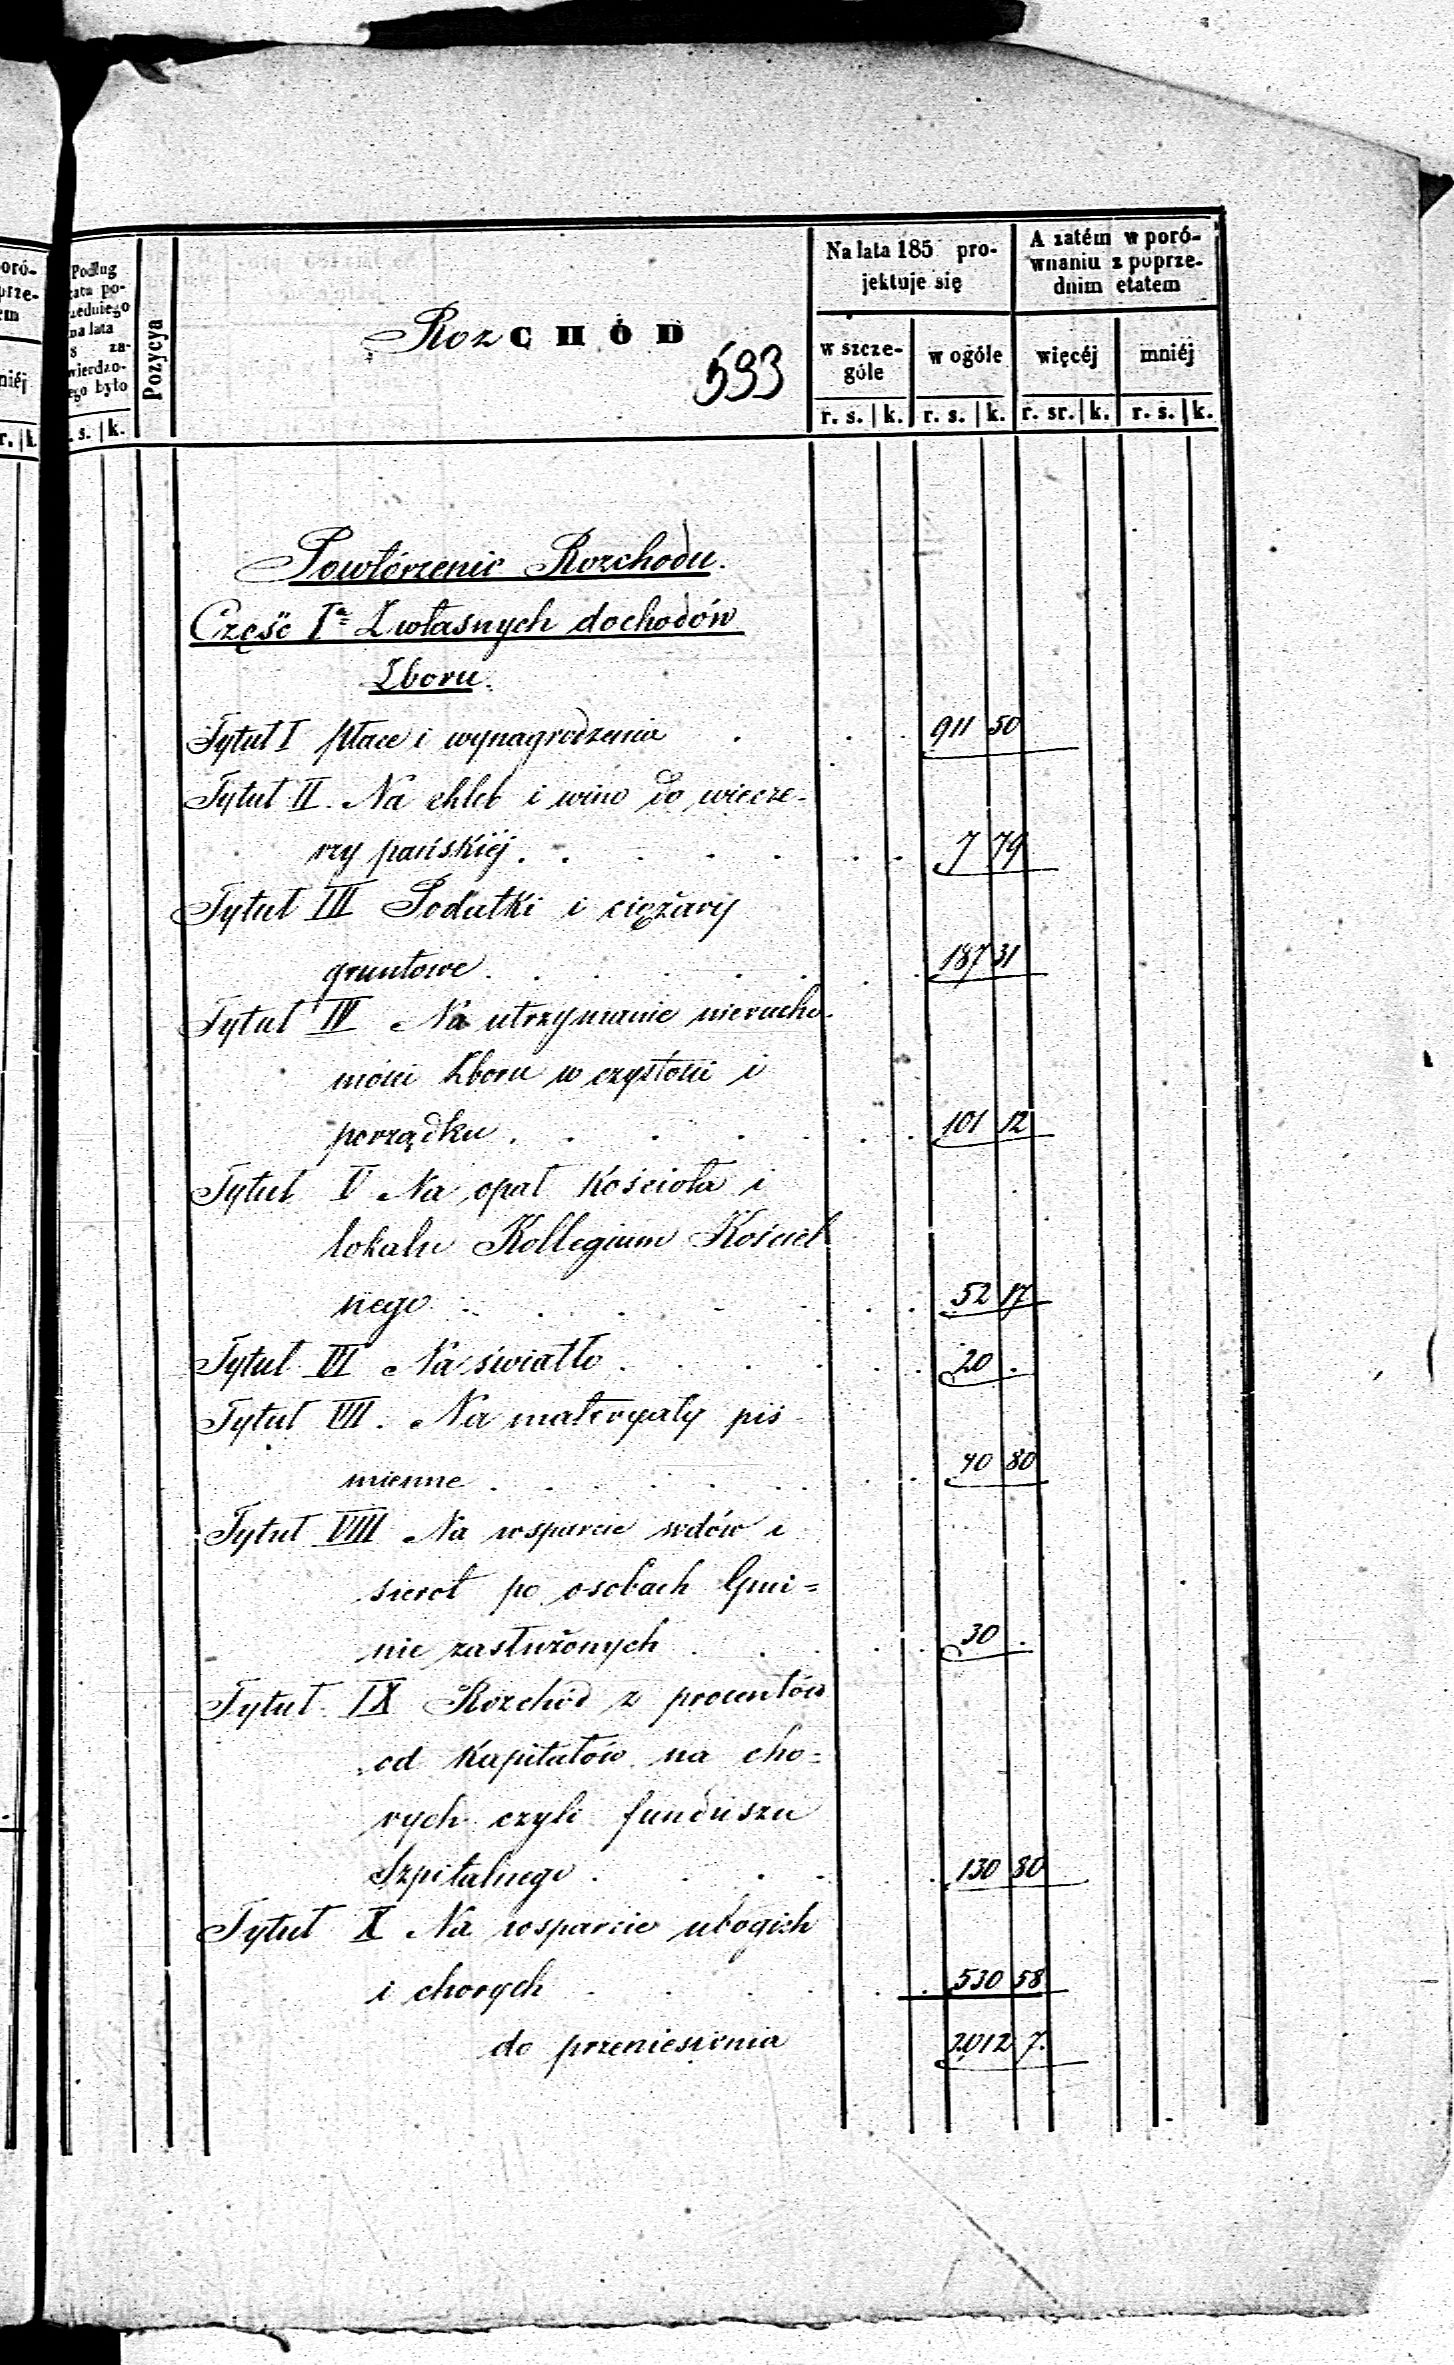 Podług
Pozycya
RozCHÓD
593
Na lata 185 pro-
jektuje się
A zatém w poró-
wnaniu z poprze-
dnim etatem
w szcze-
góle
w ogóle
więcéj
mniéj
r. s. k. r. s. k. r. sr. k. r. s. k.
na lata
za-
ego było
s. k.
Powtórzenie Rozchodu.
Część Iª Z własnych dochodów
Zboru.
Tytuł I płace i wynagrodzenia . . . 911 50
Tytuł II. Na chleb i wino do wiecze-
rzy pańskiéj . . . . . . . 7 79
Tytuł III Podatki i ciężary
gruntowe . . . . . . . 187 31
Tytuł IV Na utrzymanie nierucho-
mości Zboru w czystości i
porządku . . . . . . . 101 12
Tytuł V Na opał kościoła i
lokalu Kollegium Kościel
nego . . . . . . . 52 17
Tytuł VI Na światło . . . . . . 20 .
Tytuł VII. Na materyały piś
mienne . . . . . . . 40 80
Tytuł VIII Na wsparcie wdów i
sierot po osobach Gmi=
nie zasłużonych . . . . . 30 .
Tytuł IX Rozchód z procentów
od kapitałów na cho=
rych czyli funduszu
Szpitalnego . . . . . 130 80
Tytuł X Na wsparcie ubogich
i chorych . . . . . . 530 58
do przeniesienia 2012 7.